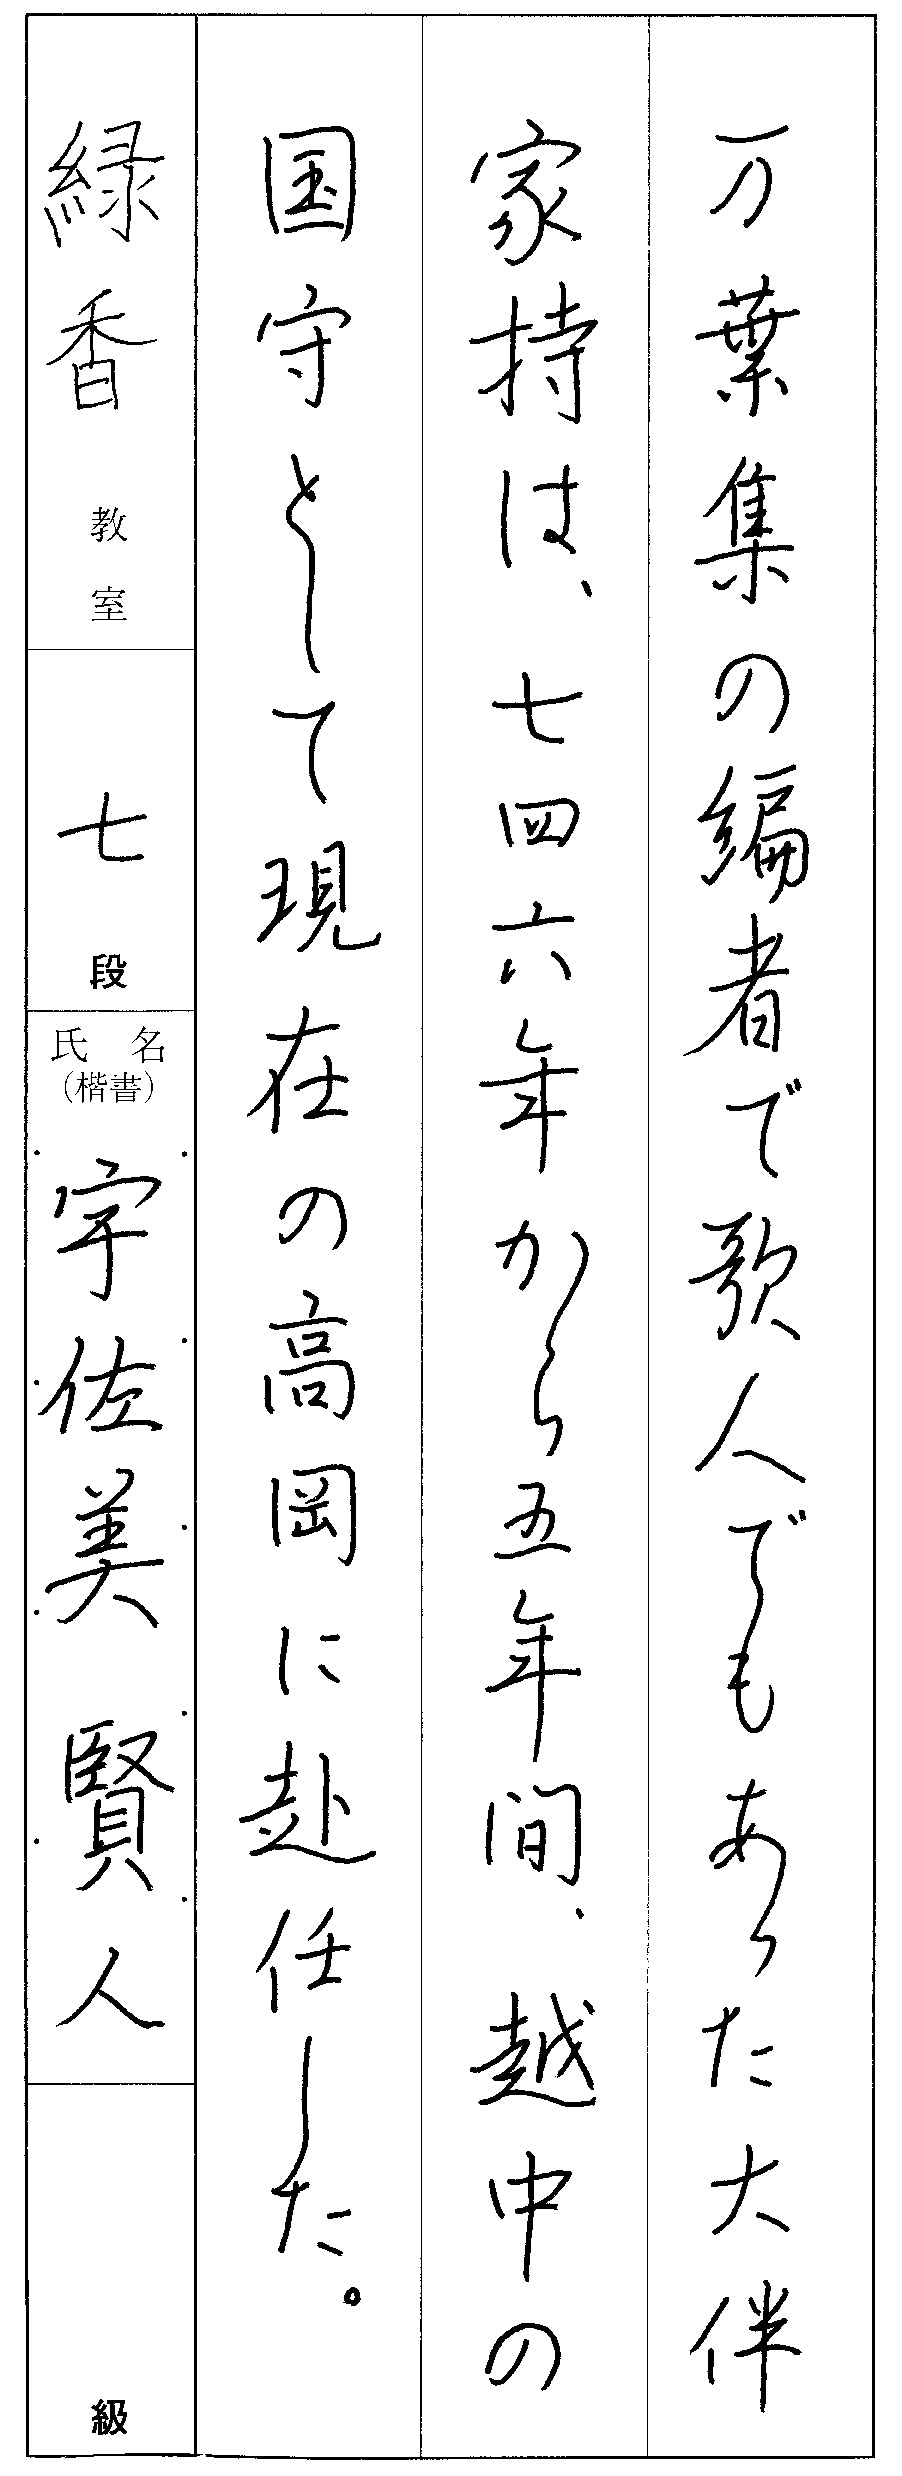 万葉集の編者で歌人でもあった大伴
家持は、七四六年から五年間、越中の
国守として現在の高岡に赴任した。
緑香教室
七段
氏名
(楷書)
宇佐美賢人
級